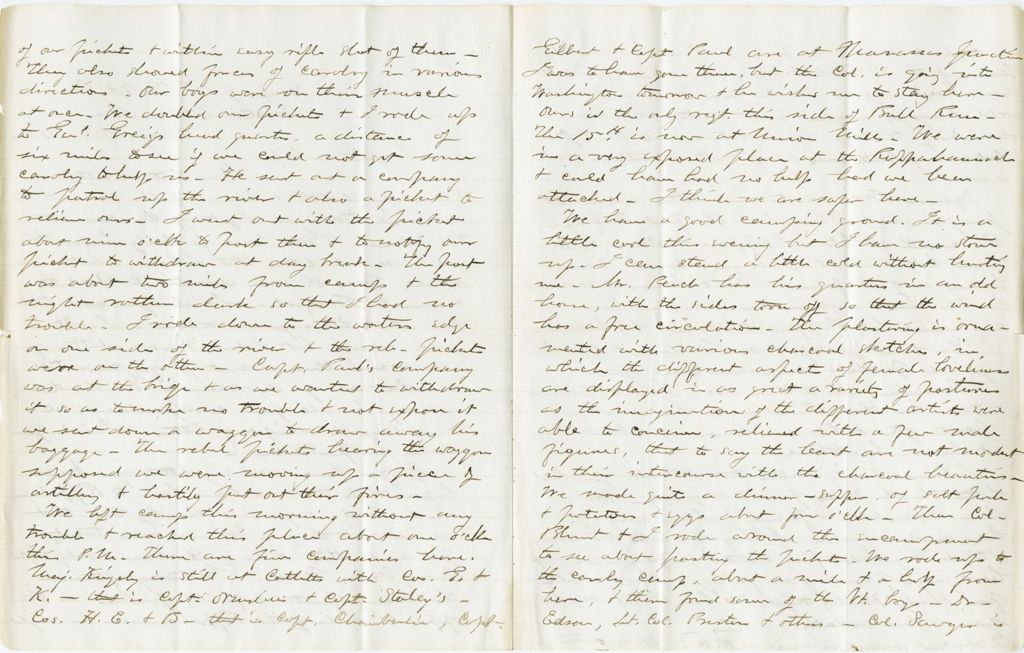 of our picket & within easy rifle shot of them —
They also showed forces of cavalry in various
directions. Our boys were on their muscle
at once. We doubled our picket & I rode up
to Gen'l Gregg's head quarts. a distance of
six miles to see if we could not get some
cavalry to help us — He sent out a company
to patrol up the river & also a picket to
relieve ours — I went out with the picket
about nine o'clk to post them & to notify our
picket to withdraw at day break — The post
was about two miles from camp & the
night rather dark so that I had no
trouble — I rode down to the waters edge
on one side of the river & the reb. picket
were on the other — Capt. Paul's company
was at the bridge & as we wanted to withdraw
it so as to make no trouble & not expose it
we sent down a waggon to draw away his
baggage — The rebel pickets hearing the waggon
supposed we were moving up a piece of
artillery & hastily put out their fires —
We left camp this morning without any
trouble & reached this place about one o'clk
this P.M. There are five companies here.
Maj. Kingsly is still at Catletts with Cos. G &
K. — that is Capt. Ormsbee & Capt. Steeley's —
Cos. H. E. & B — that is Capt. Chamberlin, Capt.
Gilbert & Capt Paul are at Manassas Junction
I was to have gone there, but the Col. is going into
Washington tomorrow & he wishes me to stay here —
Ours is the only regt this side of Bull Run —
The 15th is now at Union Mills — We were
in a very exposed place at the Rappahannock
& could have had no help had we been
attacked — I think we are safer here —
We have a good camping ground. It is a
little cool this evening but I have no stove
up — I can stand a little cold without hurting
me — Mr. has his quarters in an old
house, with the sides torn off so that the wind
has a free circulation — The plastering is orna-
mented with various charcoal sketches, in
which the different aspects of female loveliness
are displayed in as great a variety of postures
as the imagination of the different artists were
able to conceive, relieved with a few male
figures, that to say the least are not modest
in their intercourse with the charcoal beauties —
We made quite a dinner — supper, of salt pork
& potatoes & eggs about four o'clk — Then Col.
Blunt & I rode around the encampment
to see about posting the picket — We rode up to
the cavalry camp, about a mile & a half from
here, & there found some of the Vt. boys — Dr.
Edson, Lt. Col. Preston & others — Col. Sawyer is